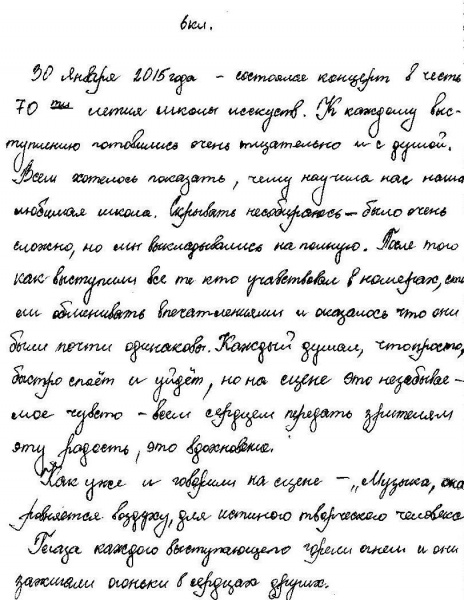 6кл.
30 Января 2015 года - состоялся концерт в честь
70 тил летия школы исскуств. К каждому выс-
туплению готовились очень тщательно и с душой.
Всем хотелось показать, чему научила нас наша
любимая школа. Скрывать несобираюсь - было очень
сложно, но мы выкладывались на полную. После того
как выступили все те кто учавствовал в номерах, ста
ли обменивать впечатлениями и оказалось что они
были почти одинаковы. Каждый думал, что просто,
быстро споёт и уйдёт, но на сцене это незабывае-
мое чувсто - всем сердцем передать зрителям
эту радость, это вдохновение.
Как уже и говорили на сцене - „Музыка, она
ровняется воздуху, для истиного творческого человека
Глаза каждого выступающего горели огнем и они
зажигали огоньки в сердцах других.